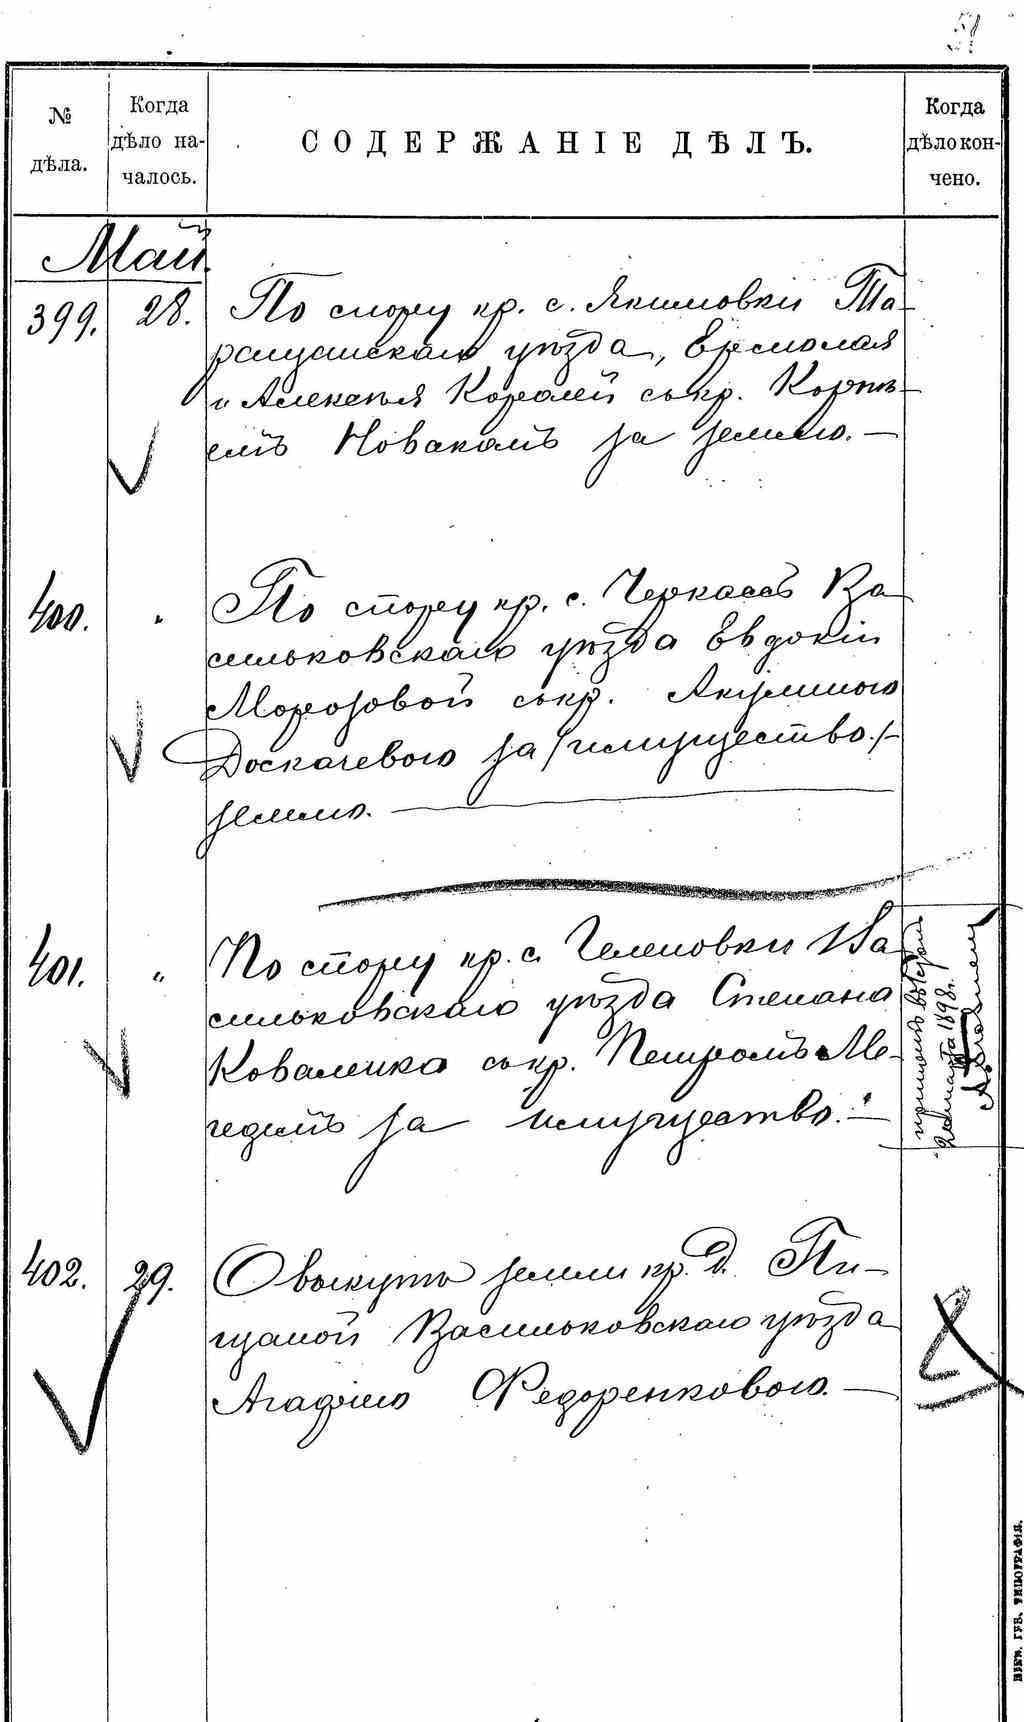 № дѣла.
Когда дѣло на-
чалось.
СОДЕРЖАНІЕ ДѢЛЪ.
Когда дѣло кон-
чено.
Май.
399. 28. По спору кр. с. Якимовки Та-
ращанскаго уѣзда, Ермолая
и Алексѣя Королей съ кр. Корнѣ-
емъ Новакомъ за землю.—
400. " По спору кр. с. Черкасъ Ва-
сильковскаго уѣзда Евдокіи
Морозовой съ кр. Акулиною
Доскачевою за /имущество./-
землю.
401. " По спору кр. с. Телешовки Ва-
сильковскаго уѣзда Степана
Коваленка съ кр. Петромъ Ме-
гедемъ за имущество.—
марта 1898 г.
402. 29. О выкупѣ земли кр. д. Пи-
щалой Васильковскаго уѣзда
Агафіею Федоренковою.—
КІЕВ. ГУБ. ТИПОГРАФІЯ.